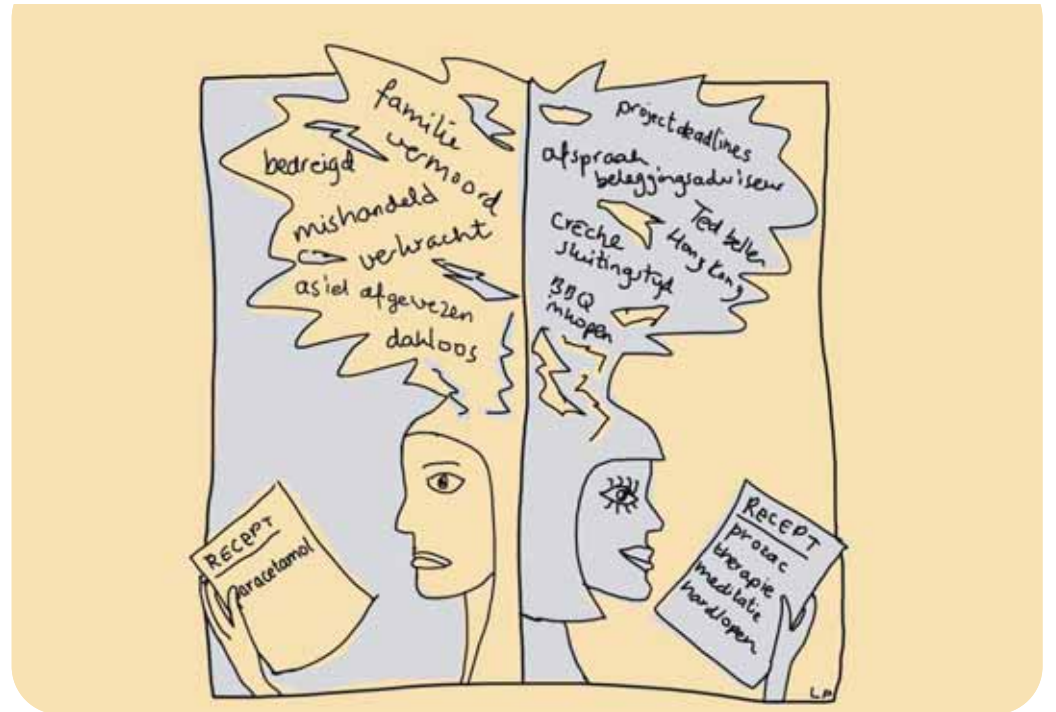 familie
vermoord
bedreigd
mishandeld
verkracht
asiel afgewezen
dakloos
RECEPT
paracetamol
projectdeadlines
afspraak
beleggingsadviseur
Ted bellen
Hong Kong
crèche
sluitingstijd
BBQ
inkopen
RECEPT
prozac
therapie
meditatie
hardlopen
LM